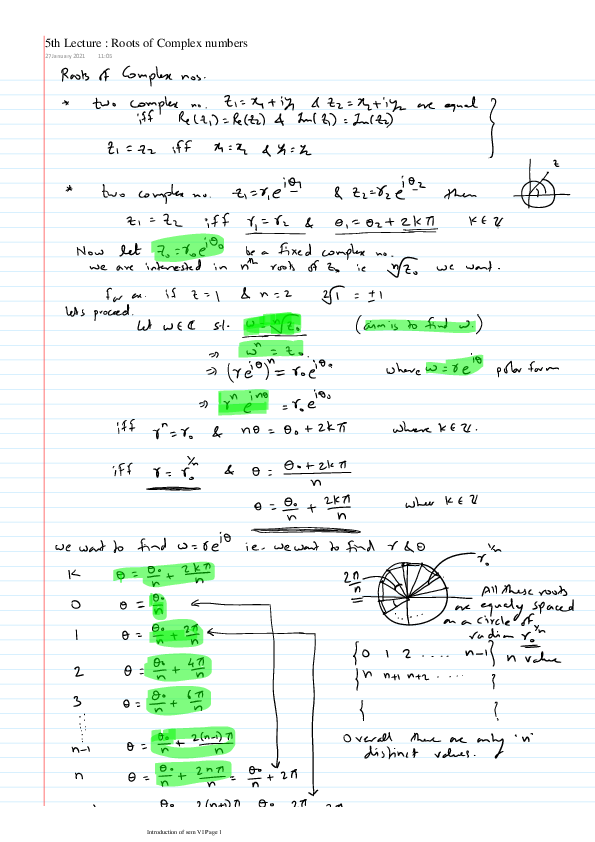 5th Lecture : Roots of Complex numbers
27 January 2021 11:03
Roots of Complex nos.
* two complex no. z₁=x₁+iy₁ & z₂=x₂+iy₂ are equal
iff Re(z₁)=Re(z₂) & Im(z₁)=Im(z₂)
z₁=z₂ iff x₁=x₂ & y₁=y₂
z
* two complex no. z₁=r₁e^{iθ₁} & z₂=r₂e^{iθ₂} then
z₁=z₂ iff r₁=r₂ & θ₁=θ₂+2kπ k∈ℤ
Now let z₀=r₀e^{iθ₀} be a fixed complex no.
we are interested in nth roots of z₀ ie ⁿ√z₀ we want.
for ex. if z=1 & n=2 ²√1 = ±1
lets proceed.
Let w∈ℂ s.t. w=ⁿ√z₀ (aim is to find w.)
⇒ wⁿ=z₀.
⇒ (re^{iθ})ⁿ=r₀e^{iθ₀} where w=re^{iθ} polar form
⇒ rⁿe^{inθ}=r₀e^{iθ₀}
iff rⁿ=r₀ & nθ=θ₀+2kπ where k∈ℤ.
iff r=r₀^{1/n} & θ=(θ₀+2kπ)/n
θ=θ₀/n + 2kπ/n where k∈ℤ
we want to find w=re^{iθ} ie. we want to find r & θ
K θ=θ₀/n + 2kπ/n
0 θ=θ₀/n
1 θ=θ₀/n + 2π/n
2 θ=θ₀/n + 4π/n
3 θ=θ₀/n + 6π/n
n-1 θ=θ₀/n + 2(n-1)π/n
n θ=θ₀/n + 2nπ/n = θ₀/n + 2π
2π/n
r₀^{1/n}
All these roots
are equally spaced
on a circle of
radius r₀^{1/n}
{0 1 2 .... n-1} n value
{n n+1 n+2 .... }
{ }
Overall there are only 'n'
distinct values.
Introduction of sem VI Page 1